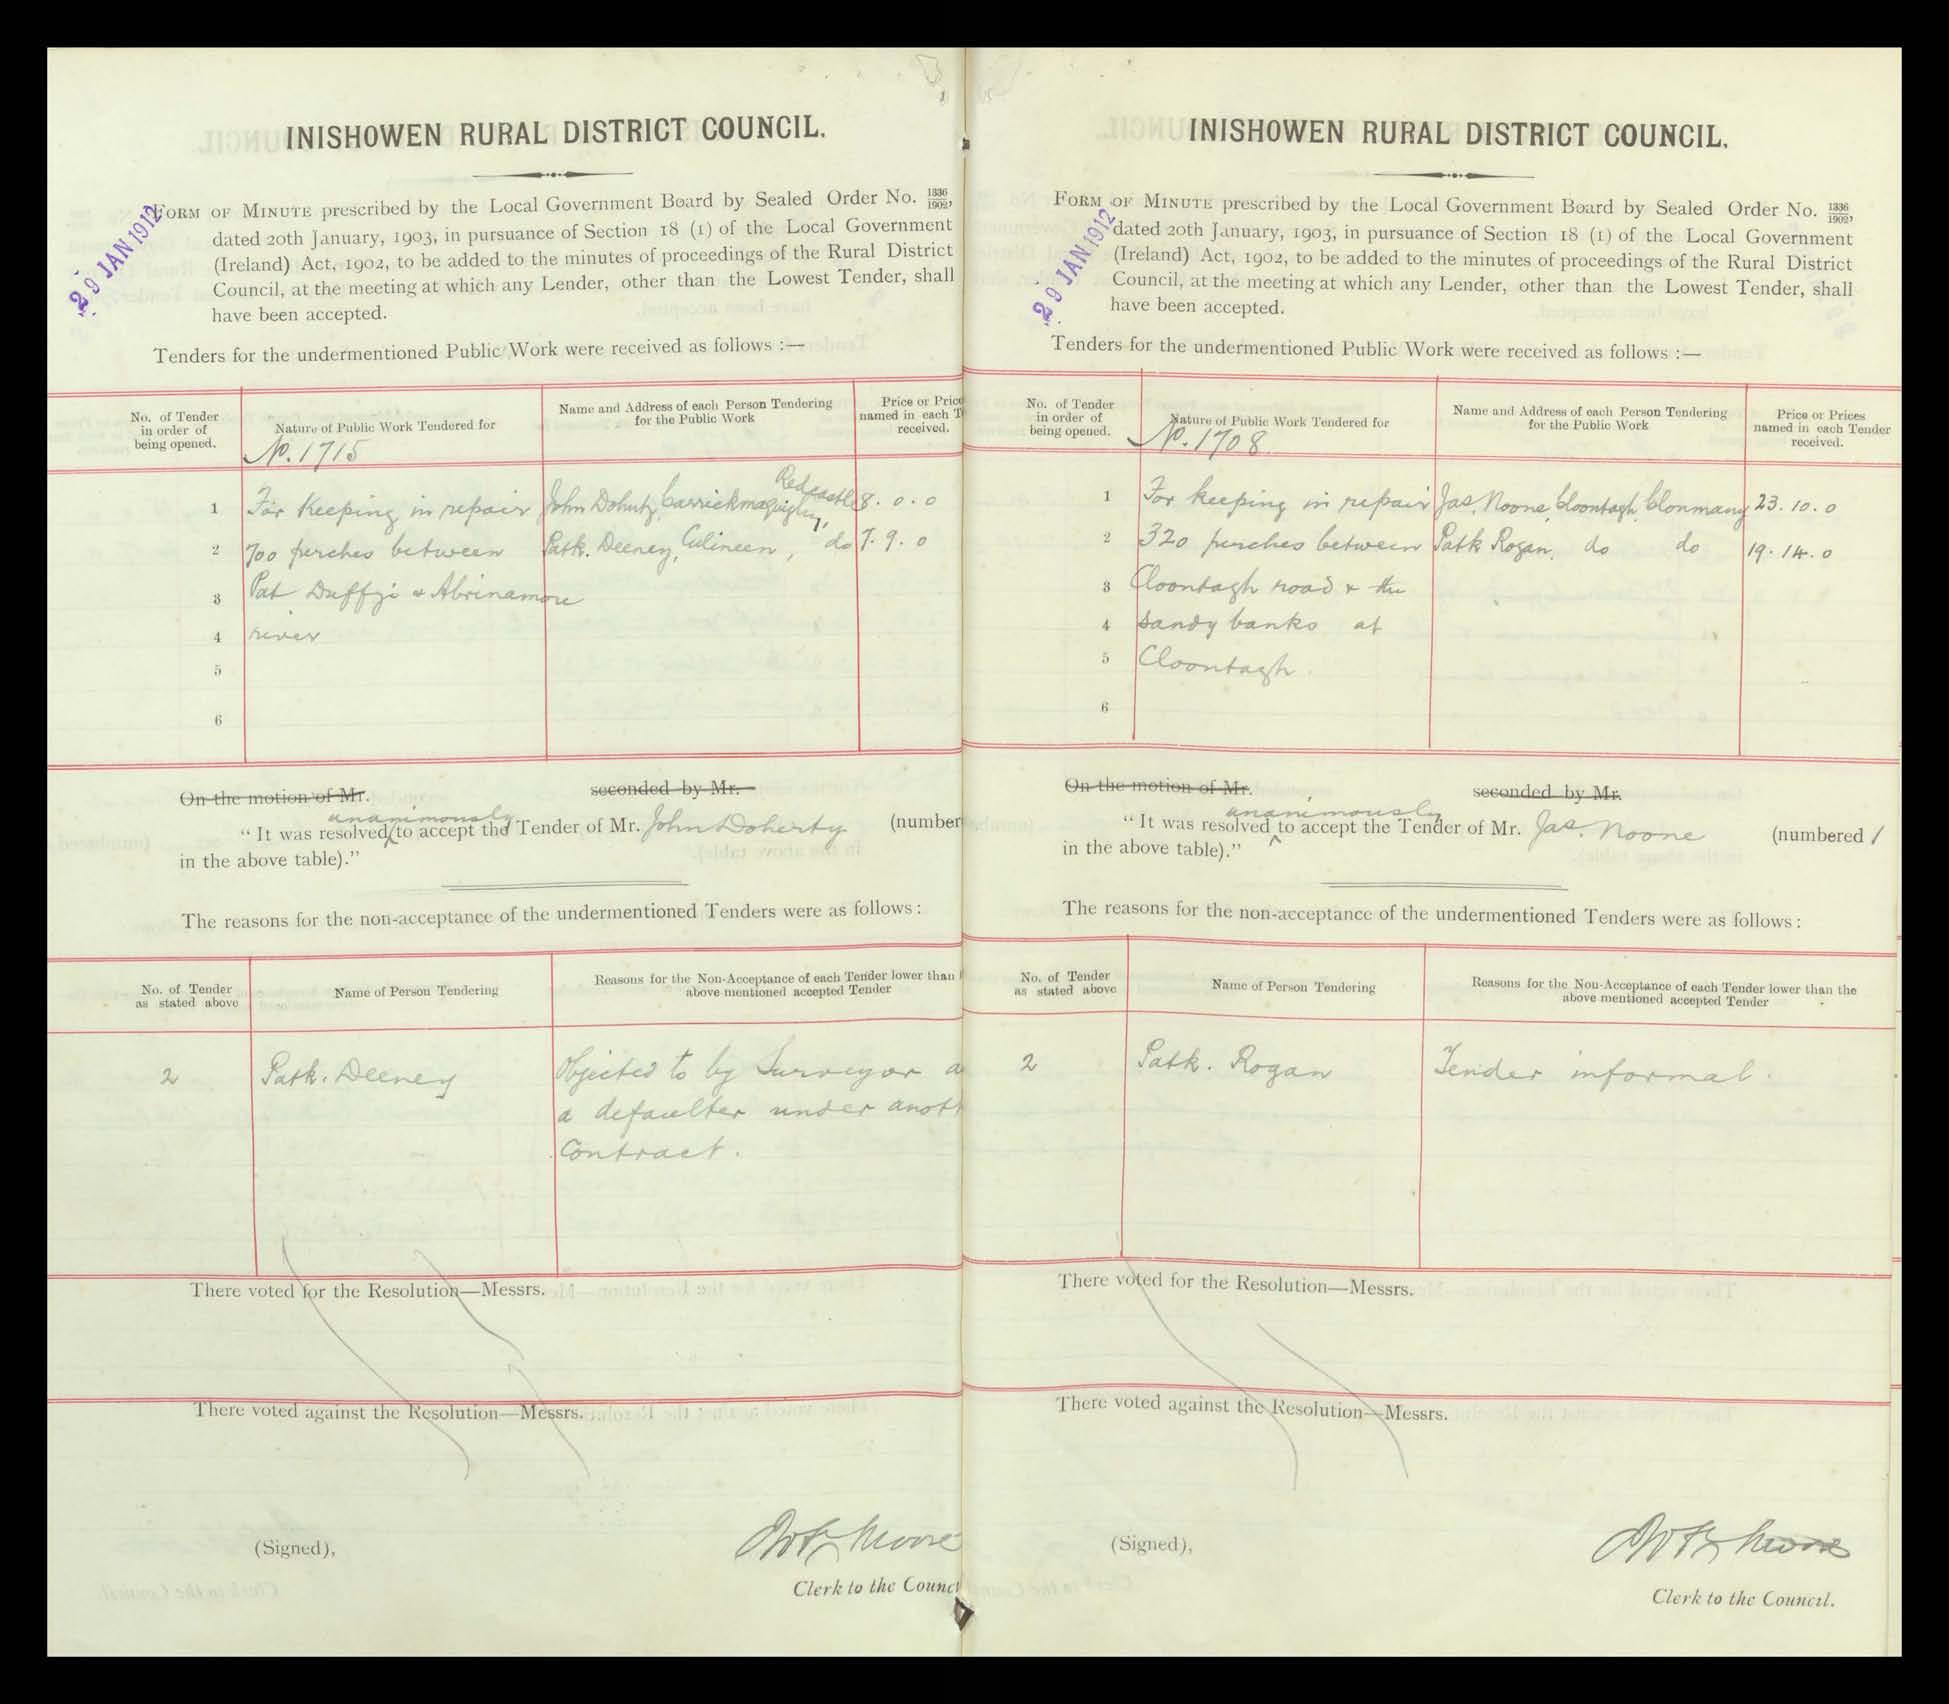 INISHOWEN RURAL DISTRICT COUNCIL.
29 JAN 1912
FORM OF MINUTE prescribed by the Local Government Board by Sealed Order No. 1336/1902,
dated 20th January, 1903, in pursuance of Section 18 (1) of the Local Government
(Ireland) Act, 1902, to be added to the minutes of proceedings of the Rural District
Council, at the meeting at which any Lender, other than the Lowest Tender, shall
have been accepted.
Tenders for the undermentioned Public Work were received as follows :—
No. of Tender in order of being opened.
Nature of Public Work Tendered for
No. 1715
Name and Address of each Person Tendering for the Public Work
Price or Price named in each T received.
1 For Keeping in repair John Dohuty, Carrickmaquigley, Redcastle 8. 0. 0
2 700 perches between Patk. Deeney, Culineen, do 7. 9. 0
3 Pat Duffy's & Abrinamore
4 river
5
6
On the motion of Mr. seconded by Mr.
unanimously
"It was resolved to accept the Tender of Mr. John Doherty (number
in the above table)."
The reasons for the non-acceptance of the undermentioned Tenders were as follows :
No. of Tender as stated above
Name of Person Tendering
Reasons for the Non-Acceptance of each Tender lower than
above mentioned accepted Tender
2 Patk. Deeney Objected to by Surveyor a
a defaulter under anoth
Contract.
There voted for the Resolution—Messrs.
There voted against the Resolution—Messrs.
(Signed),
Moore
Clerk to the Counc
INISHOWEN RURAL DISTRICT COUNCIL.
29 JAN 1912
FORM OF MINUTE prescribed by the Local Government Board by Sealed Order No. 1336/1902,
dated 20th January, 1903, in pursuance of Section 18 (1) of the Local Government
(Ireland) Act, 1902, to be added to the minutes of proceedings of the Rural District
Council, at the meeting at which any Lender, other than the Lowest Tender, shall
have been accepted.
Tenders for the undermentioned Public Work were received as follows :—
No. of Tender in order of being opened.
Nature of Public Work Tendered for
No. 1708
Name and Address of each Person Tendering for the Public Work
Price or Prices named in each Tender received.
1 For keeping in repair Jas. Noone, Cloontagh, Clonmany 23. 10. 0
2 320 perches between Patk Rogan, do do 19. 14. 0
3 Cloontagh road & the
4 sandy banks at
5 Cloontagh.
6
On the motion of Mr. seconded by Mr.
unanimously
"It was resolved to accept the Tender of Mr. Jas. Noone (numbered 1
in the above table)."
The reasons for the non-acceptance of the undermentioned Tenders were as follows :
No. of Tender as stated above
Name of Person Tendering
Reasons for the Non-Acceptance of each Tender lower than the
above mentioned accepted Tender
2 Patk. Rogan Tender informal.
There voted for the Resolution—Messrs.
There voted against the Resolution—Messrs.
(Signed),
Moore
Clerk to the Council.